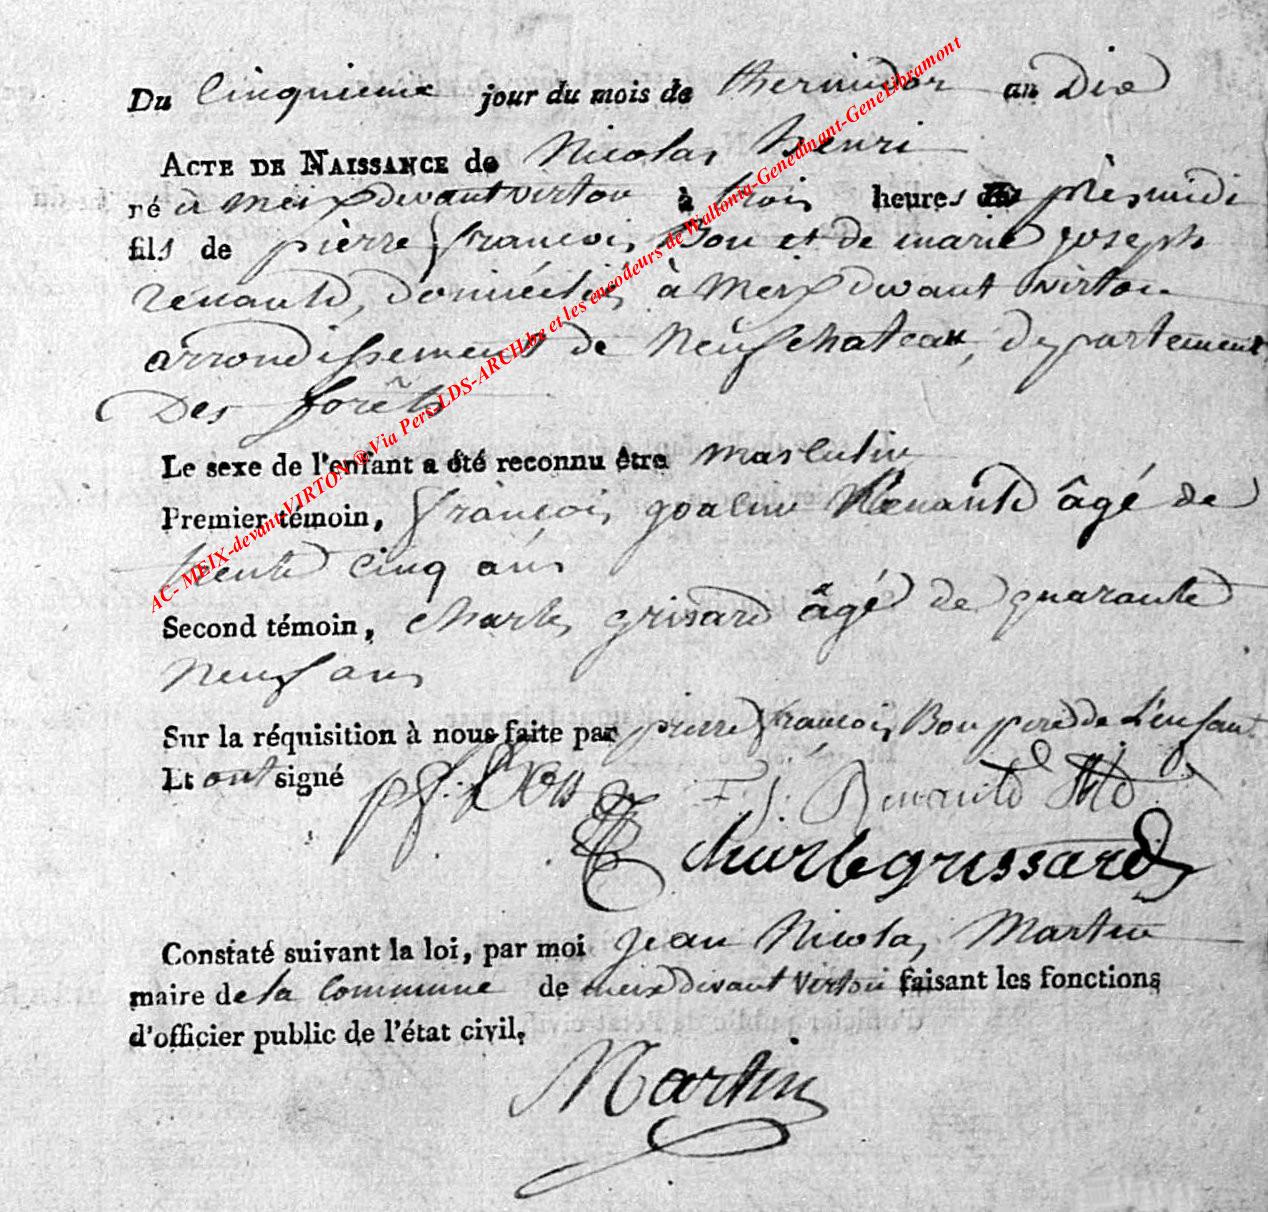 Du Cinquieme jour du mois de thermidor an Dix
ACTE DE NAISSANCE de Nicolas henri
né à meix devant virton à trois heures après midi
fils de pièrre françois Bou et de marie joseph
renauld, domiciliés à Meix devant virton
arrondissement de Neufchateau, département
Des forêts
Le sexe de l'enfant a été reconnu être masculin
Premier témoin, françois joachim Renauld âgé de
trente cinq ans
Second témoin, charles grisard âgé de quarante
neuf ans
Sur la réquisition à nous faite par pierre françois Bou père de L'enfant
Et ont signé p f. Bou F. J. Renauld
charle grissard
Constaté suivant la loi, par moi jean Nicolas Martin
maire de la Commune de meix devant virton faisant les fonctions
d'officier public de l'état civil.
Martin
AC- MEIX-devant VIRTON ® Via Pers-LDS-ARCH.be et les encodeurs de Wallonia-Genedinant-GeneLibramont